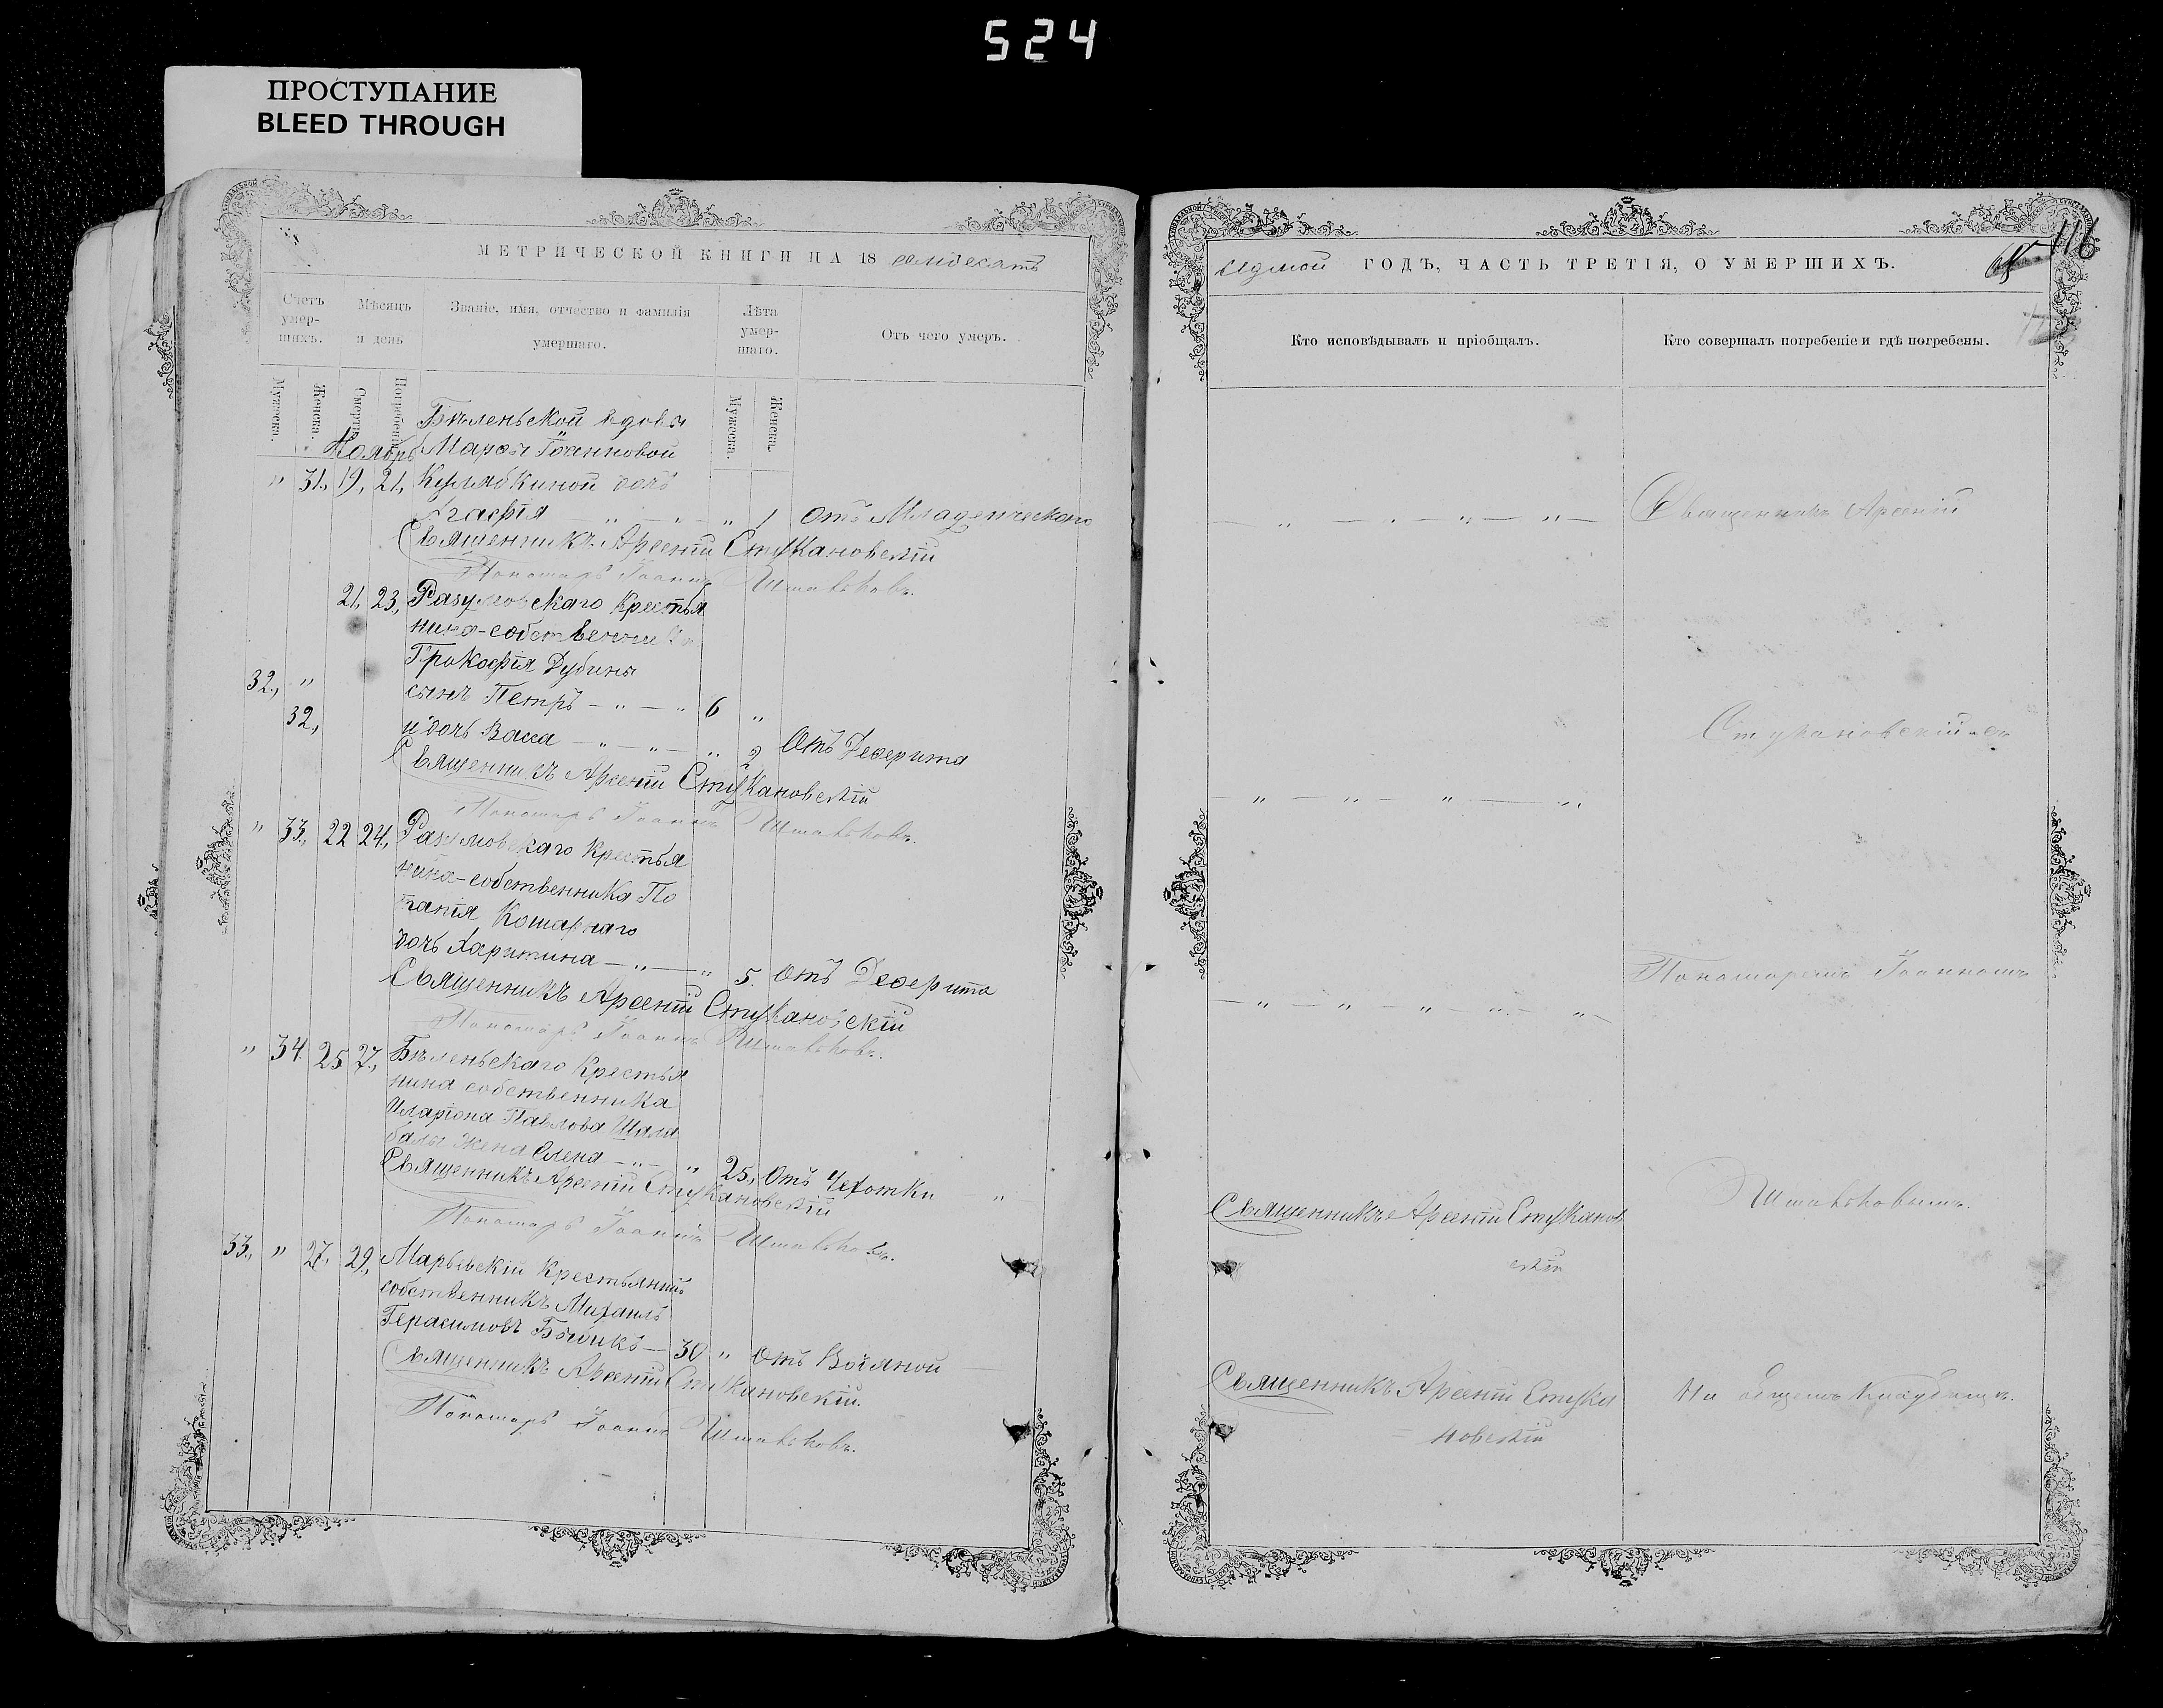 524
ПРОСТУПАНИЕ
BLEED THROUGH
МЕТРИЧЕСКОЙ КНИГИ НА 18 семдесятъ
Счетъ умер-шихъ.
Мѣсяцъ и день
Званіе, имя, отчество и фамилія умершаго.
Лѣта умер-шаго.
Отъ чего умеръ.
Мужеска.
Женска.
Смерти.
Погребенія.
Мужеска.
Женска.
Бѣленьской вдовы
Ноябрь Марѳы Іоанновой
" 31, 19, 21, Кулябкиной дочь
Агафія — " — " — " 1 Отъ Младенческаго
Священникъ Арсеній Стукановскій
Пономарь Іоаннъ
21, 23, Разумовскаго Крестья
нина-собственника
Прокофія Дубины
32, " сынъ Петръ — " — " 6 "
32, и дочь Васса — " — " — " 2 Отъ Деферита
Священникъ Арсеній Стукановскій
Пономарь Іоаннъ
" 33, 22 24, Разумовскаго Крестья
нина-собственника По
тапія Кошарнаго
дочь Харитина — " — " 5. Отъ Деферита
Священникъ Арсеній Стукановскій
Пономарь Іоаннъ
" 34 25 27, Бѣленьскаго Крестья
нина собственника
Иларіона Павлова Шала
балы жена Елена — " — " 25, Отъ Чехотки "
Священникъ Арсеній Стукановскій
Пономарь Іоаннъ
33, " 27, 29, Марьевскій Крестьянинъ
собственникъ Михаилъ
Герасимовъ — 30 " Отъ Водяной
Священникъ Арсеній Стукановскій.
Пономарь Іоаннъ
седмой ГОДЪ, ЧАСТЬ ТРЕТІЯ, О УМЕРШИХЪ.
116
Кто исповѣдывалъ и пріобщалъ.
Кто совершалъ погребеніе и гдѣ погребены.
— " — " — " — " — Священникъ Арсеній
Стукановскій съ
— " — " — " — "
Пономаремъ Іоанномъ
— " — " — " — " — " —
Священникъ Арсеній Стуканов
скій
Священникъ Арсеній Стука
новскій
На общемъ кладбищѣ.